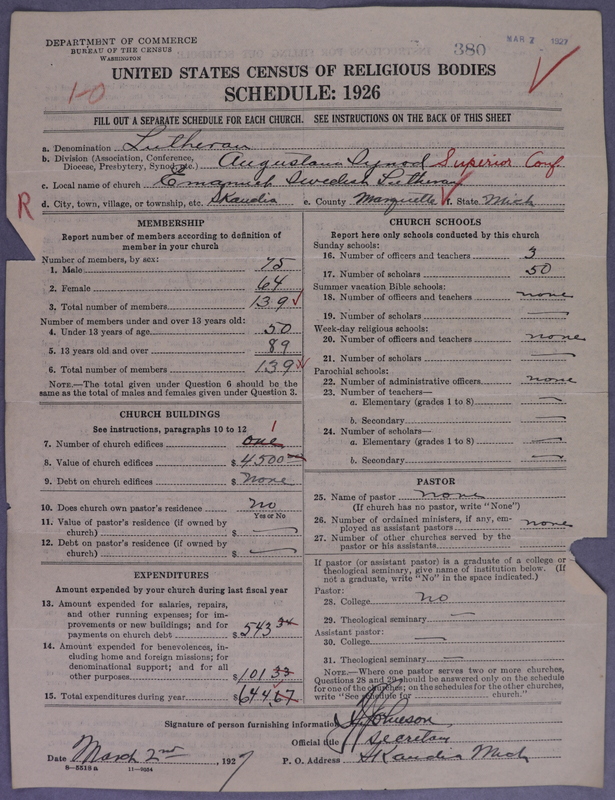 DEPARTMENT OF COMMERCE
BUREAU OF THE CENSUS
WASHINGTON
380
MAR 2 1927
UNITED STATES CENSUS OF RELIGIOUS BODIES
SCHEDULE: 1926
1-0
FILL OUT A SEPARATE SCHEDULE FOR EACH CHURCH. SEE INSTRUCTIONS ON THE BACK OF THIS SHEET
a. Denomination Lutheran
b. Division (Association, Conference, Diocese, Presbytery, Synod, etc.) Augustana Synod Superior Conf
c. Local name of church Emanuel Swedish Lutheran
d. City, town, village, or township, etc. Skandia e. County Marquette f. State Mich
R
MEMBERSHIP
Report number of members according to definition of
member in your church
Number of members, by sex:
1. Male 75
2. Female 64
3. Total number of members 139
Number of members under and over 13 years old:
4. Under 13 years of age 50
5. 13 years old and over 89
6. Total number of members 139
NOTE.—The total given under Question 6 should be the
same as the total of males and females given under Question 3.
CHURCH BUILDINGS
See instructions, paragraphs 10 to 12
7. Number of church edifices one 1
8. Value of church edifices $ 4500
9. Debt on church edifices $ None
10. Does church own pastor's residence no
Yes or No
11. Value of pastor's residence (if owned by
church) $ —
12. Debt on pastor's residence (if owned by
church) $ —
EXPENDITURES
Amount expended by your church during last fiscal year
13. Amount expended for salaries, repairs,
and other running expenses; for im-
provements or new buildings; and for
payments on church debt $ 543 34
14. Amount expended for benevolences, in-
cluding home and foreign missions; for
denominational support; and for all
other purposes $ 101 33
15. Total expenditures during year $ 644,67
CHURCH SCHOOLS
Report here only schools conducted by this church
Sunday schools:
16. Number of officers and teachers 3
17. Number of scholars 50
Summer vacation Bible schools:
18. Number of officers and teachers none
19. Number of scholars —
Week-day religious schools:
20. Number of officers and teachers none
21. Number of scholars —
Parochial schools:
22. Number of administrative officers none
23. Number of teachers—
a. Elementary (grades 1 to 8) —
b. Secondary —
24. Number of scholars—
a. Elementary (grades 1 to 8) —
b. Secondary —
PASTOR
25. Name of pastor none
(If church has no pastor, write "None")
26. Number of ordained ministers, if any, em-
ployed as assistant pastors none
27. Number of other churches served by the
pastor or his assistants
If pastor (or assistant pastor) is a graduate of a college or
theological seminary, give name of institution below. (If
not a graduate, write "No" in the space indicated.)
Pastor:
28. College no
29. Theological seminary —
Assistant pastor:
30. College —
31. Theological seminary —
NOTE.—Where one pastor serves two or more churches,
Questions 28 and 29 should be answered only on the schedule
for one of the churches; on the schedules for the other churches,
write "See schedule for church."
Signature of person furnishing information Johnson
Official title Secretary
Date March 2nd 1927 P. O. Address Skandia Mich
8-5518 a 11-9384